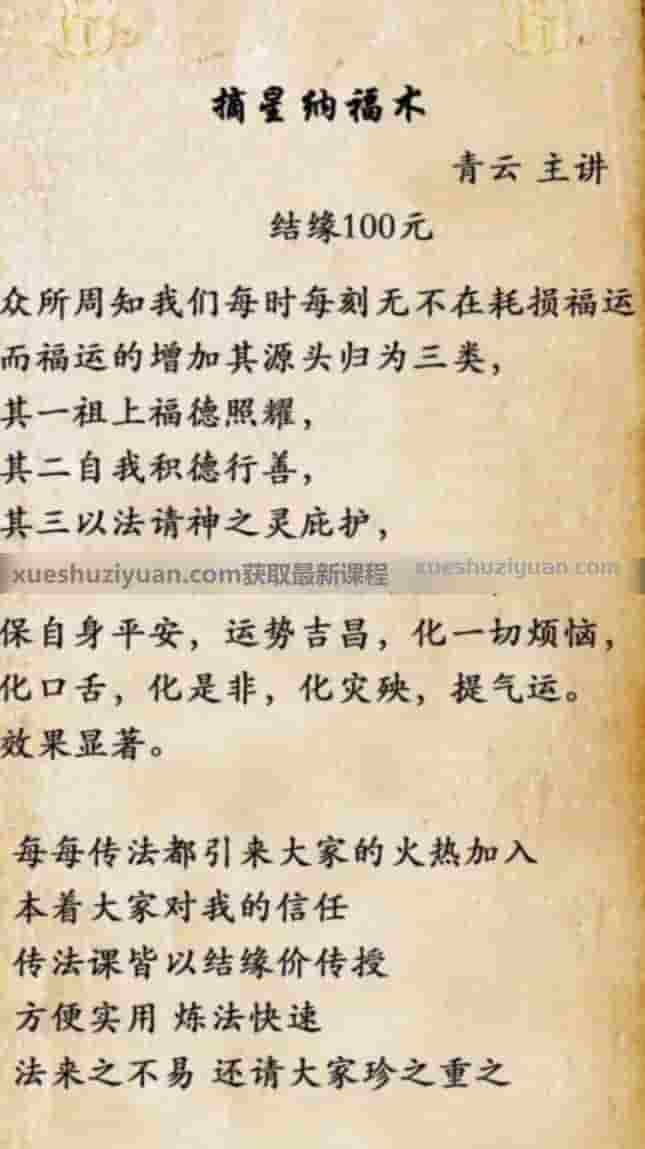 摘星纳福术
青云 主讲
结缘100元
众所周知我们每时每刻无不在耗损福运
而福运的增加其源头归为三类，
其一祖上福德照耀，
其二自我积德行善，
其三以法请神之灵庇护，
xueshuziyuan.com获取最新课程 xueshuziyuan.com
保自身平安，运势吉昌，化一切烦恼，
化口舌，化是非，化灾殃，提气运。
效果显著。
每每传法都引来大家的火热加入
本着大家对我的信任
传法课皆以结缘价传授
方便实用 炼法快速
法来之不易 还请大家珍之重之